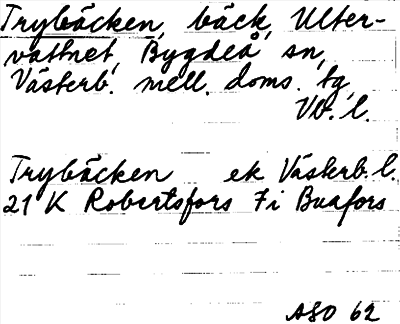 Trybäcken, bäck, Ulter-
vattnet, Bygdeå sn,
Västerb. mell. doms. tg,
Vb. l.
Trybäcken ek Västerb. l.
21 K Robertsfors 7 i Buafors
ASO 62